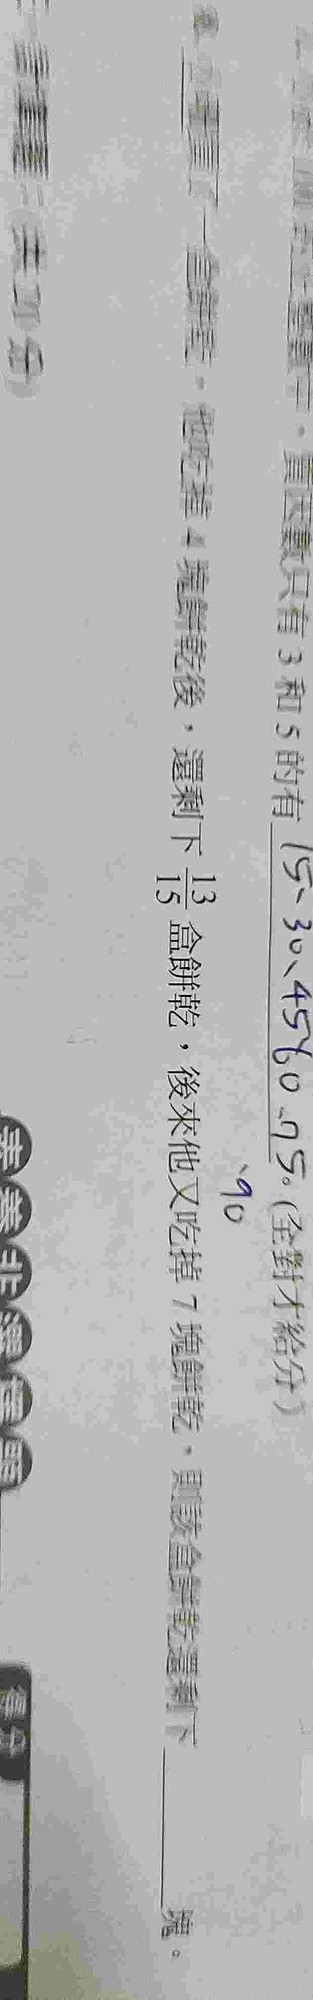 質因數只有 3 和 5 的有 15、30、45、60、75。(全對才給分)
、90
買了一盒餅乾，他吃掉 4 塊餅乾後，還剩下 13/15 盒餅乾，後來他又吃掉 7 塊餅乾，則該盒餅乾還剩下 ＿＿＿ 塊。
素養非選擇題
得分